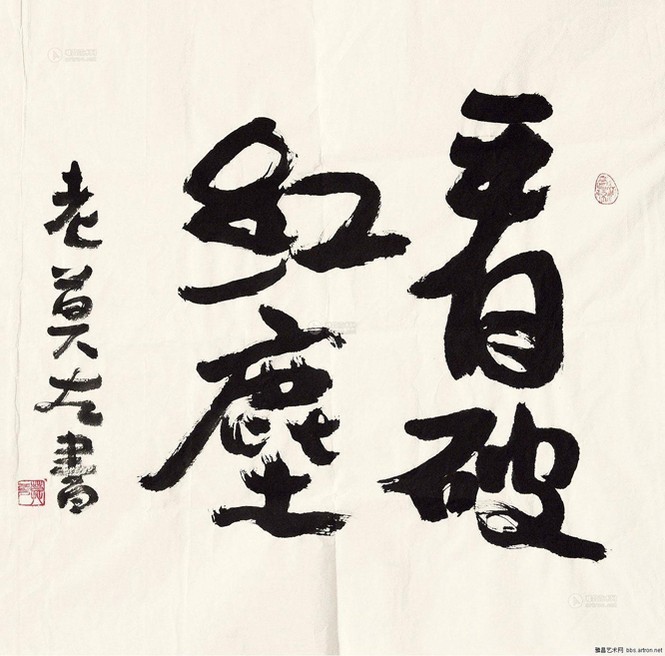 看破
紅塵
老莫左書
雅昌艺术网 bbs.artron.net